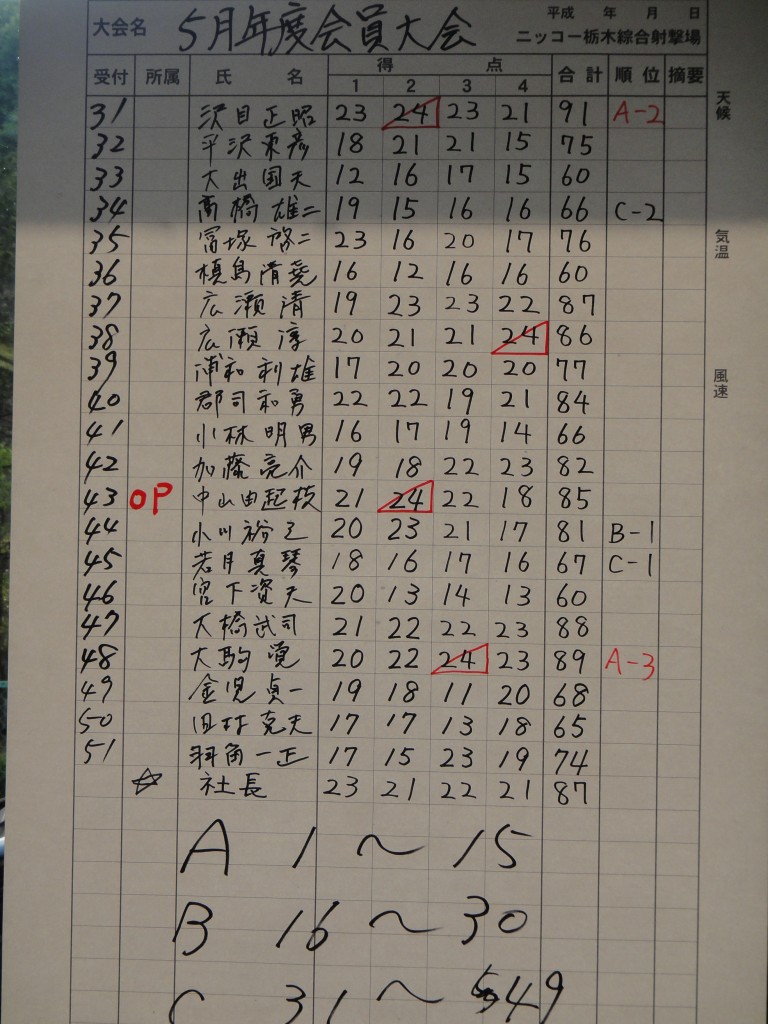 大会名 5月年度会員大会 平成 年 月 日
ニッコー栃木綜合射撃場
受付 所属 氏 名 得 点 合計 順位 摘要
1 2 3 4
天候
気温
風速
31 沢目正昭 23 24 23 21 91 A-2
32 平沢東彦 18 21 21 15 75
33 大出国夫 12 16 17 15 60
34 高橋雄二 19 15 16 16 66 C-2
35 冨塚啓二 23 16 20 17 76
36 槙島清堯 16 12 16 16 60
37 広瀬清 19 23 23 22 87
38 広瀬淳 20 21 21 24 86
39 浦和利雄 17 20 20 20 77
40 郡司和勇 22 22 19 21 84
41 小林明男 16 17 19 14 66
42 加藤亮介 19 18 22 23 82
43 OP 中山由起枝 21 24 22 18 85
44 小川裕之 20 23 21 17 81 B-1
45 若月真琴 18 16 17 16 67 C-1
46 宮下資夫 20 13 14 13 60
47 大橋武司 21 22 22 23 88
48 大駒寛 20 22 24 23 89 A-3
49 金児貞一 19 18 11 20 68
50 田村克夫 17 17 13 18 65
51 羽角一正 17 15 23 19 74
☆ 社長 23 21 22 21 87
A 1～15
B 16～30
C 31～49